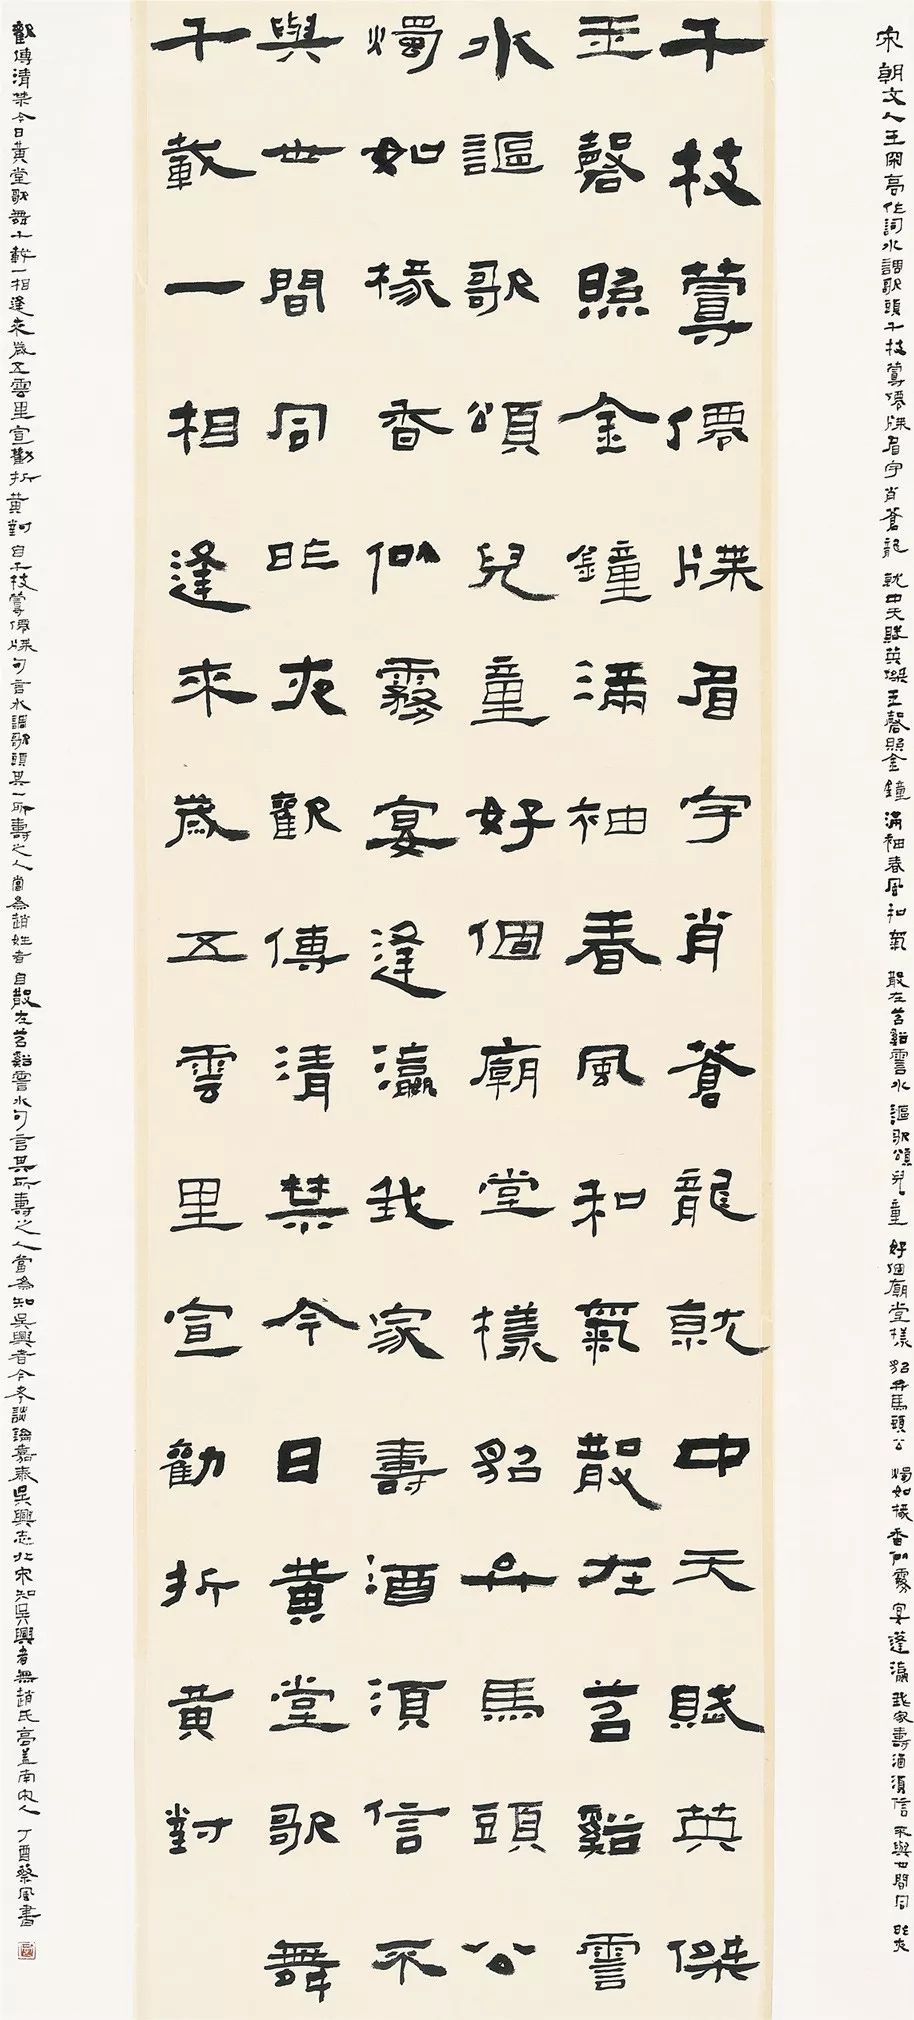 宋朝文人王罙高作詞水調歌頭千枝蓴僊牒眉宇肖蒼龍就中天賦英傑玉磬照金鐘滿袖春風和氣散在苕谿霅水謳歌頌兒童好個廟堂樣貂弁馬頭公燭如椽香似霧宴蓬瀛我家壽酒須信不與世間同昨夜
千枝蓴僊牒眉宇肖蒼龍就中天賦英傑
玉磬照金鐘滿袖春風和氣散在苕谿霅
水謳歌頌兒童好個廟堂樣貂弁馬頭公
燭如椽香似霧宴逢瀛我家壽酒須信不
與世間同昨夜觀傳清禁今日黃堂歌舞
千載一相逢來歲五雲里宣勸折黃對
觀傳清禁今日黃堂歌舞千載一相逢來歲五雲里宣勸折黃對自千枝蓴僊牒句言水調歌頭其一所壽之人當為趙姓者自散在苕谿霅水句言其所壽之人當為知吳興者今考談鑰嘉泰吳興志北宋知吳興者無趙氏高盖南宋人丁酉蔡風書